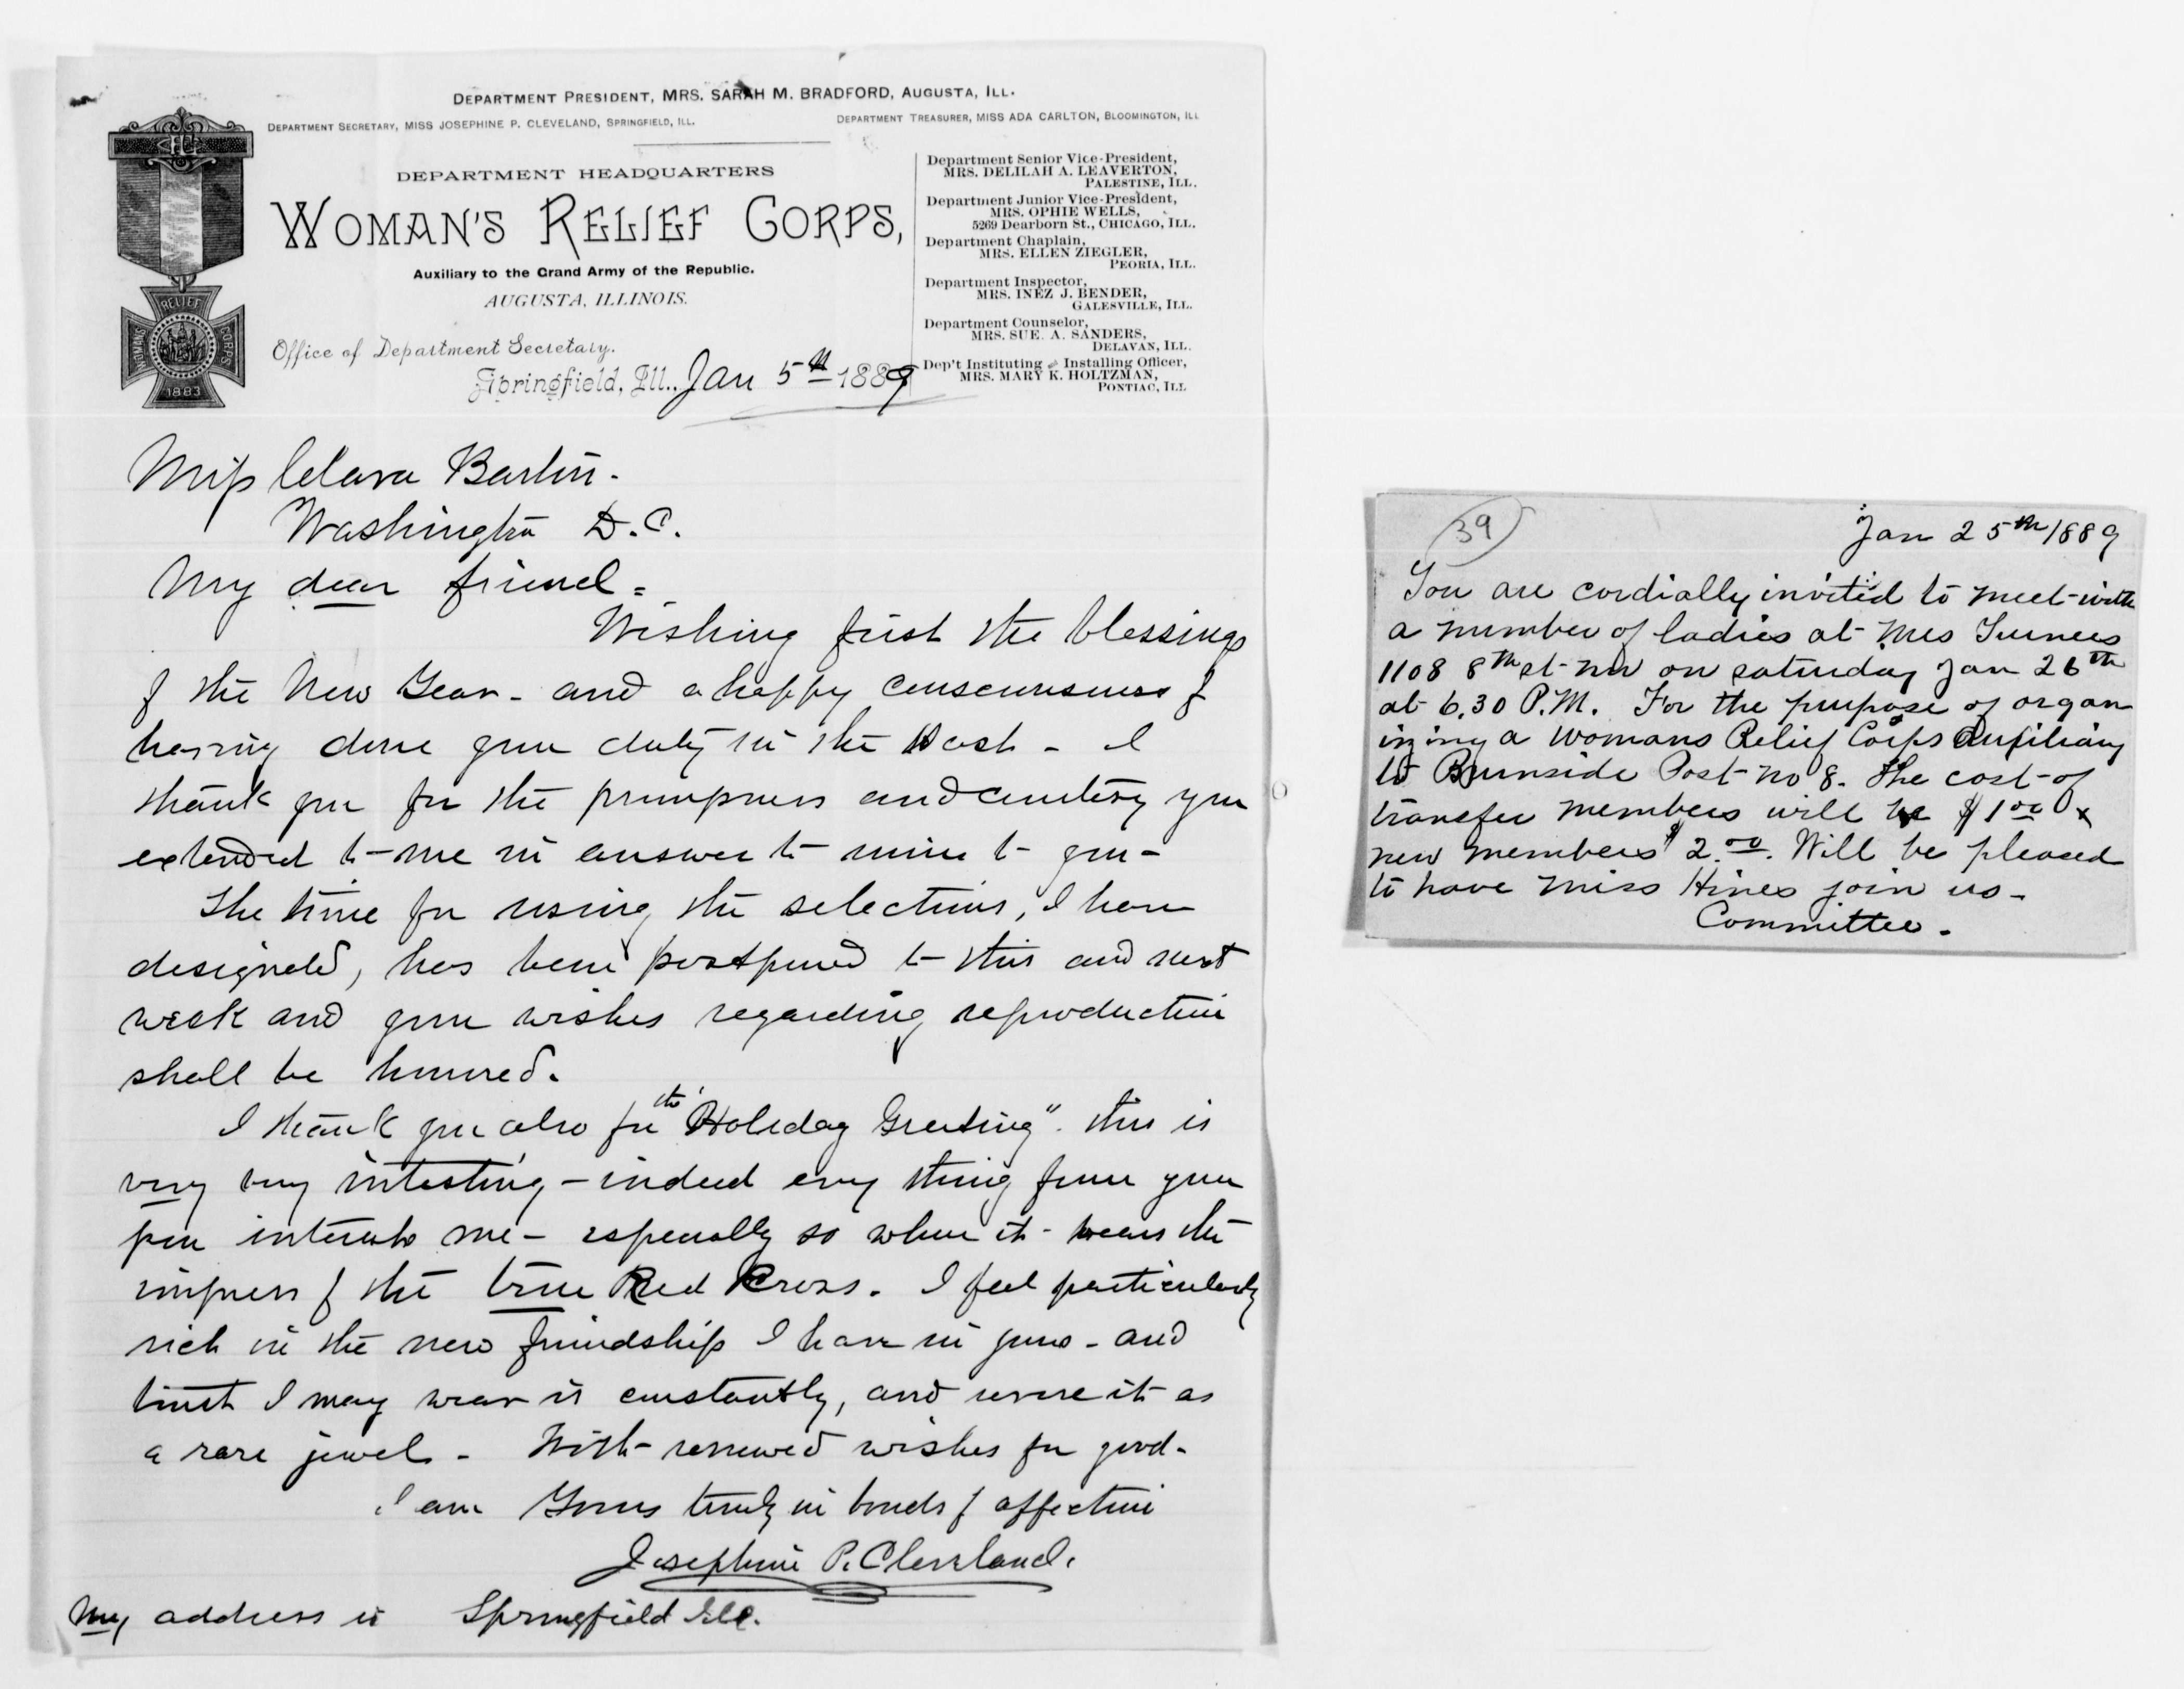 DEPARTMENT PRESIDENT, MRS. SARAH M. BRADFORD, AUGUSTA, ILL.
DEPARTMENT SECRETARY, MISS JOSEPHINE P. CLEVELAND, SPRINGFIELD, ILL.
DEPARTMENT TREASURER, MISS ADA CARLTON, BLOOMINGTON, ILL
DEPARTMENT HEADQUARTERS
WOMAN'S RELIEF CORPS,
Auxiliary to the Grand Army of the Republic.
AUGUSTA, ILLINOIS.
Office of Department Secretary.
Springfield, Ill., Jan 5th 1889
RELIEF
WOMAN'S
CORPS
1883
Department Senior Vice-President,
MRS. DELILAH A. LEAVERTON,
PALESTINE, ILL.
Department Junior Vice-President,
MRS. OPHIE WELLS,
5269 Dearborn St., CHICAGO, ILL.
Department Chaplain,
MRS. ELLEN ZIEGLER,
PEORIA, ILL.
Department Inspector,
MRS. INEZ J. BENDER,
GALESVILLE, ILL.
Department Counselor,
MRS. SUE. A. SANDERS,
DELAVAN, ILL.
Dep't Instituting and Installing Officer,
MRS. MARY K. HOLTZMAN,
PONTIAC, ILL
Miss Clara Barton.
Washington D.C.
My dear friend =
Wishing first the blessings
of the New Year - and a happy consciousness of
having done your duty in the past - I
thank you for the promptness and courtesy you
extended to me in answer to mine to you -
The time for using the selections, I have
designated, has been postponed to this and next
week and your wishes regarding reproduction
shall be honored.
I thank you also for the "Holiday Greeting". this is
very very intesting - indeed every thing from your
pen interests me - especially so when it - wears the
impress of the true Red Cross. I feel particularly
rich in the new friendship I have in yours - and
trust I may wear it constantly, and revere it as
a rare jewel - With renewed wishes for good -
I am Yours truly in bonds of affection
Josephine P. Cleveland.
My address is Springfield Ill.
39
Jan 25th 1889
You are cordially invited to meet with
a number of ladies at Mrs Turners
1108 8th st - nw on saturday Jan 26th
at 6.30 P.M. For the purpose of organ
izing a Womans Relief Corps Auxiliary
to Burnside Post - no 8. The cost - of
transfer members will be $1.00 &
new members $2.00. Will be pleased
to have Miss Hines join us -
Committee.